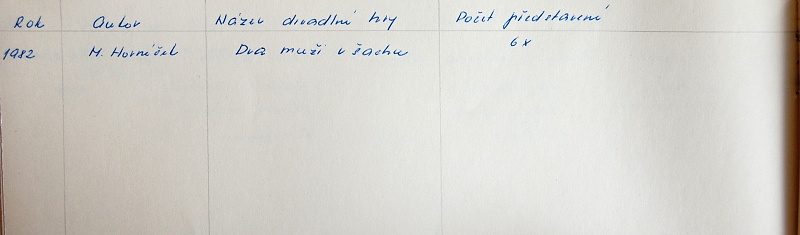 Rok Autor Název divadlní hry Počet představení
1982 M. Horníček Dva muži v šachu 6x